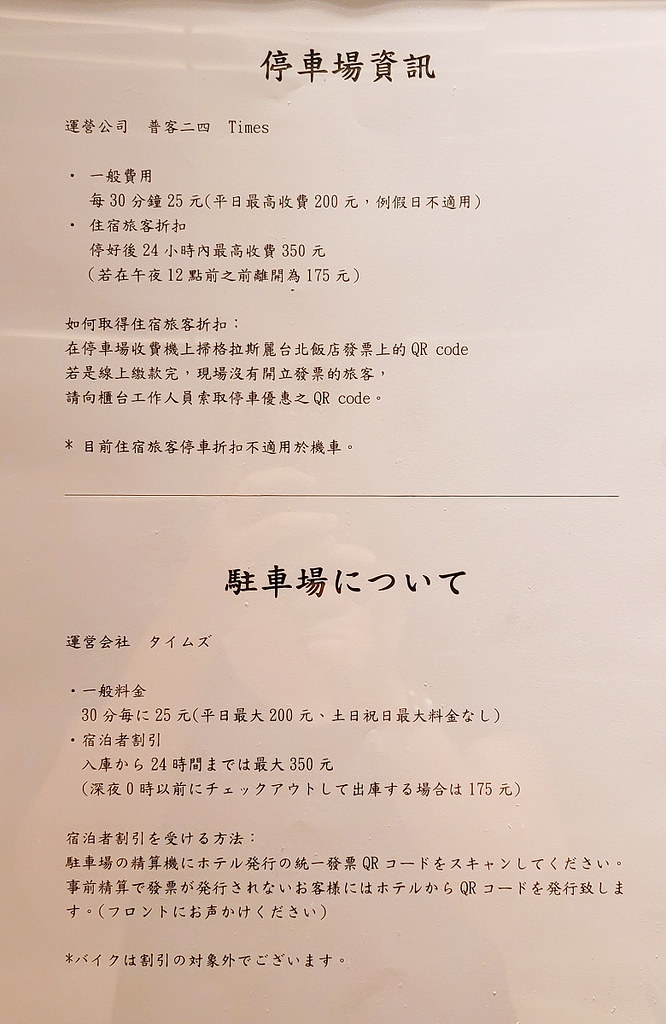 停車場資訊
運營公司　普客二四　Times
・ 一般費用
每 30 分鐘 25 元(平日最高收費 200 元，例假日不適用)
・ 住宿旅客折扣
停好後 24 小時內最高收費 350 元
(若在午夜 12 點前之前離開為 175 元)
如何取得住宿旅客折扣：
在停車場收費機上掃格拉斯麗台北飯店發票上的 QR code
若是線上繳款完，現場沒有開立發票的旅客，
請向櫃台工作人員索取停車優惠之 QR code。
* 目前住宿旅客停車折扣不適用於機車。
駐車場について
運営会社　タイムズ
・一般料金
30 分毎に 25 元(平日最大 200 元、土日祝日最大料金なし)
・宿泊者割引
入庫から 24 時間までは最大 350 元
(深夜 0 時以前にチェックアウトして出庫する場合は 175 元)
宿泊者割引を受ける方法：
駐車場の精算機にホテル発行の統一發票 QR コードをスキャンしてください。
事前精算で發票が発行されないお客様にはホテルから QR コードを発行致しま
す。(フロントにお声かけください)
*バイクは割引の対象外でございます。